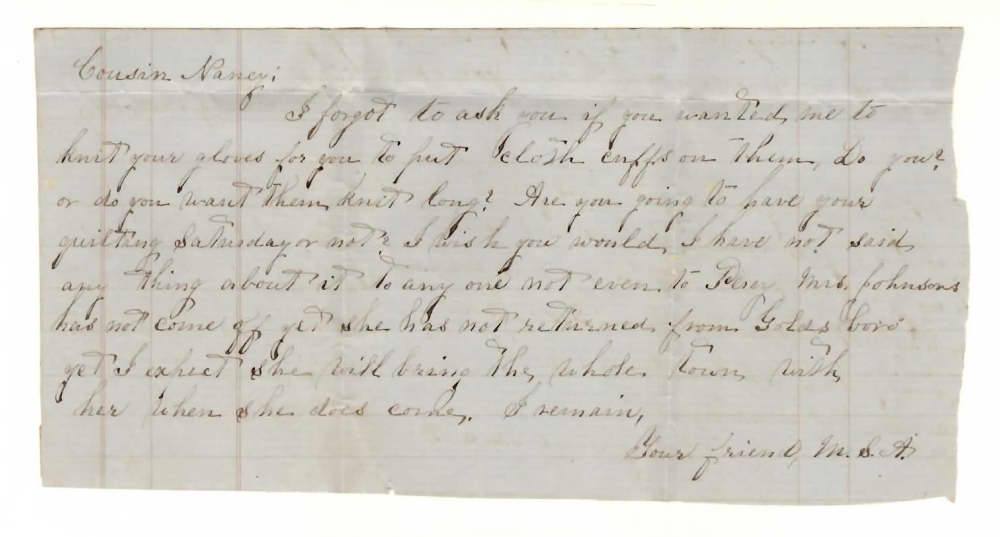 Cousin Nancy;
I forgot to ask you if you wanted me to
knit your gloves for you to put cloth cuffs on them, Do you?
or do you want them knit long? Are you going to have your
quilting Saturday or not? I wish you would, I have not said
any thing about it to any one not even to Mrs. Johnsons
has not come off yet she has not returned from Goldsboro
yet I expect she will bring the whole town with
her when she does come. I remain,
Your friend, M. S. A.